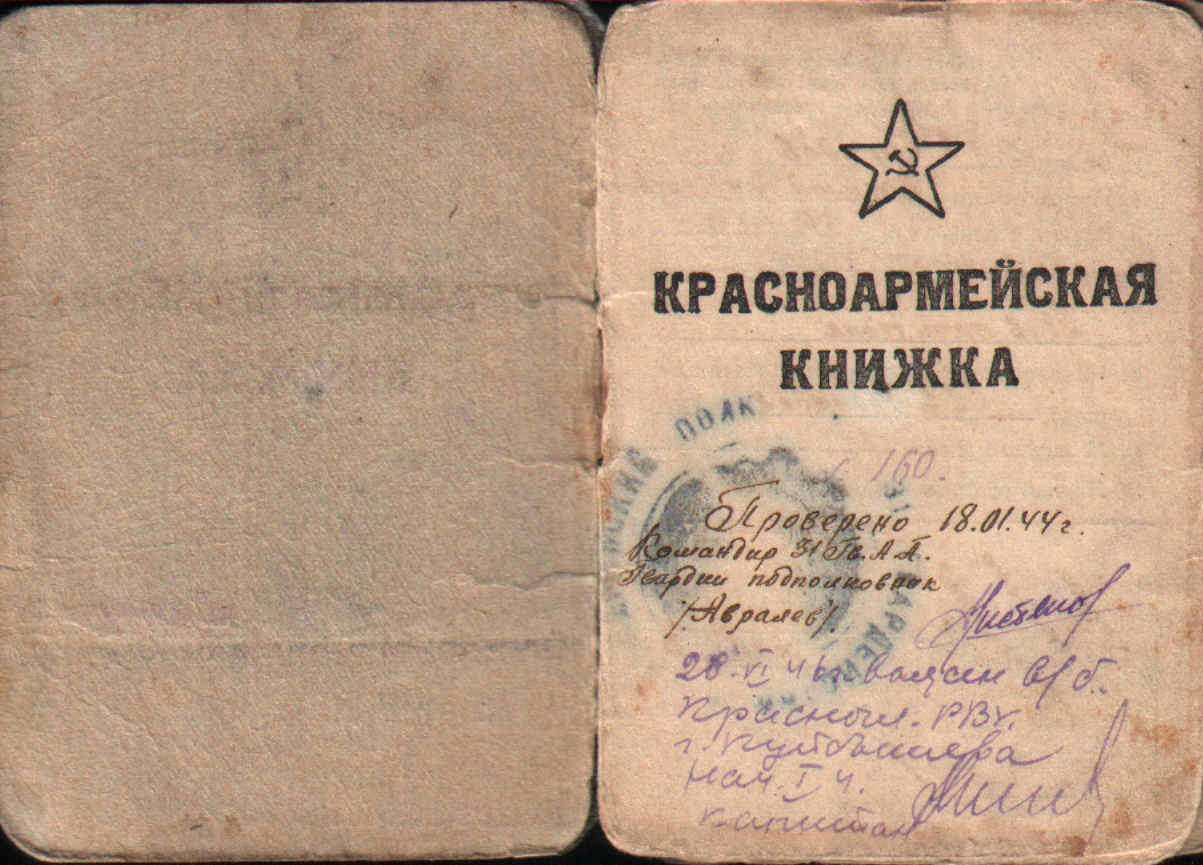 КРАСНОАРМЕЙСКАЯ
КНИЖКА
ПОЛК
160.
Проверено 18.01.44г.
Командир 31 Гв. А.П.
Гвардии подполковник
28.VI 46г.
РВК.
г. Куйбышева
нач. I ч.
капитан